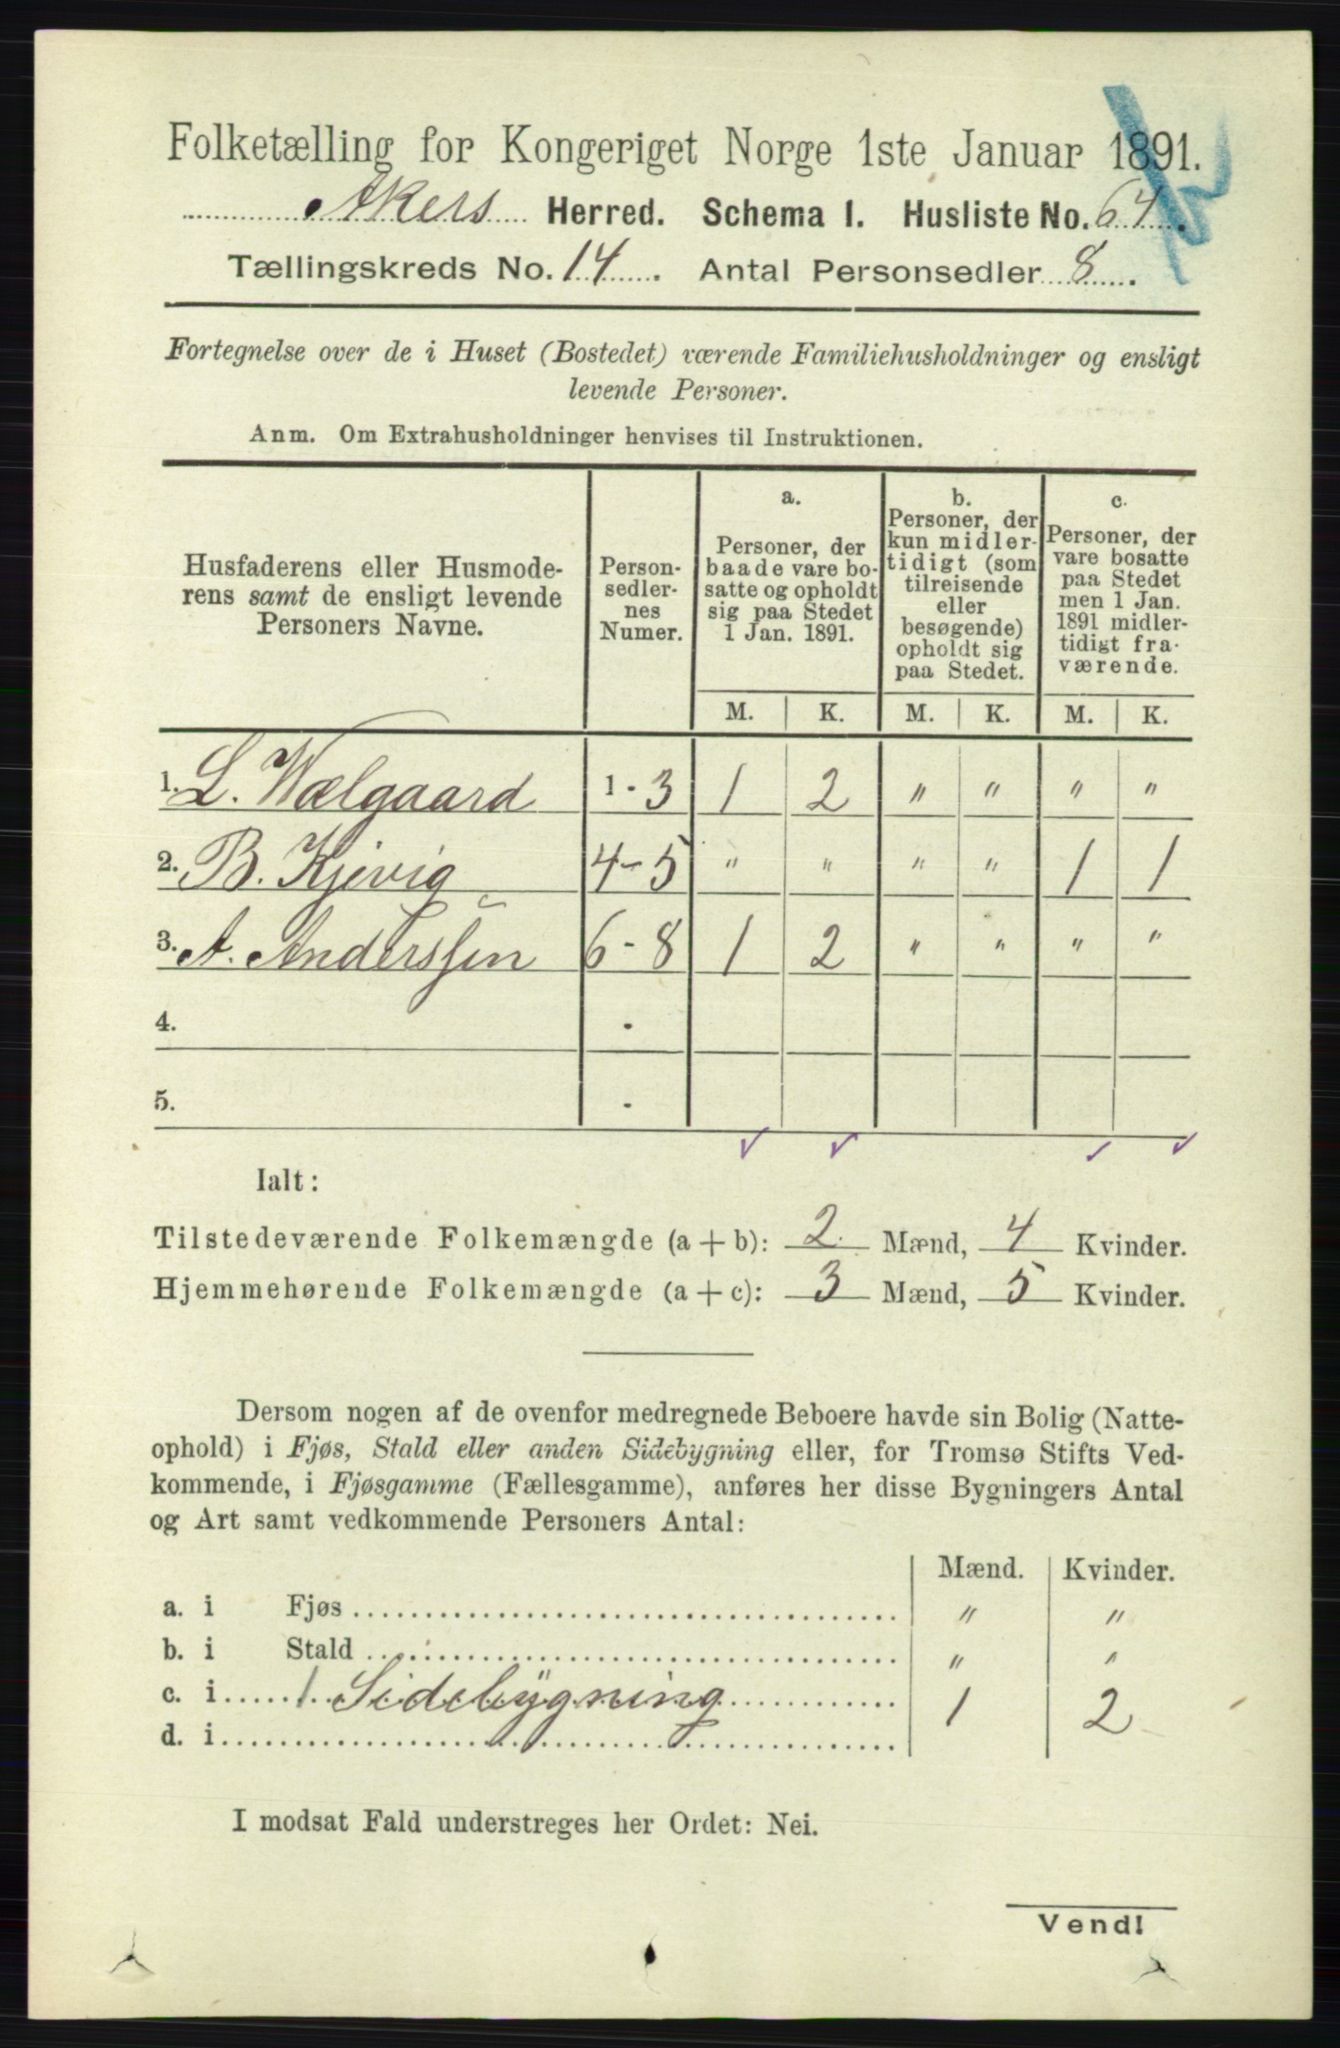 Folketælling for Kongeriget Norge 1ste Januar 1891.
Akers Herred. Schema I. Husliste No. 64.
Tællingskreds No. 14. Antal Personsedler 8.
Fortegnelse over de i Huset (Bostedet) værende Familiehusholdninger og ensligt
levende Personer.
Anm. Om Extrahusholdninger henvises til Instruktionen.
Husfaderens eller Husmode-
rens samt de ensligt levende
Personers Navne.
Person-
sedler-
nes
Numer.
a.
Personer, der
baade vare bo-
satte og opholdt
sig paa Stedet
1 Jan. 1891.
b.
Personer, der
kun midler-
tidigt (som
tilreisende
eller
besøgende)
opholdt sig
paa Stedet.
c.
Personer, der
vare bosatte
paa Stedet
men 1 Jan.
1891 midler-
tidigt fra-
værende.
M. K. M. K. M. K.
1. L. Wælgaard 1 - 3 1 2 " " " "
2. B. Kjevig 4 - 5 " " " " 1 1
3. A. Anderssen 6 - 8 1 2 " " " "
4. -
5. -
Ialt:
Tilstedeværende Folkemængde (a + b): 2 Mænd, 4 Kvinder.
Hjemmehørende Folkemængde (a + c): 3 Mænd, 5 Kvinder.
Dersom nogen af de ovenfor medregnede Beboere havde sin Bolig (Natte-
ophold) i Fjøs, Stald eller anden Sidebygning eller, for Tromsø Stifts Ved-
kommende, i Fjøsgamme (Fællesgamme), anføres her disse Bygningers Antal
og Art samt vedkommende Personers Antal:
Mænd. Kvinder.
a. i Fjøs " "
b. i Stald " "
c. i 1 Sidebygning 1 2
d. i
I modsat Fald understreges her Ordet: Nei.
Vend!